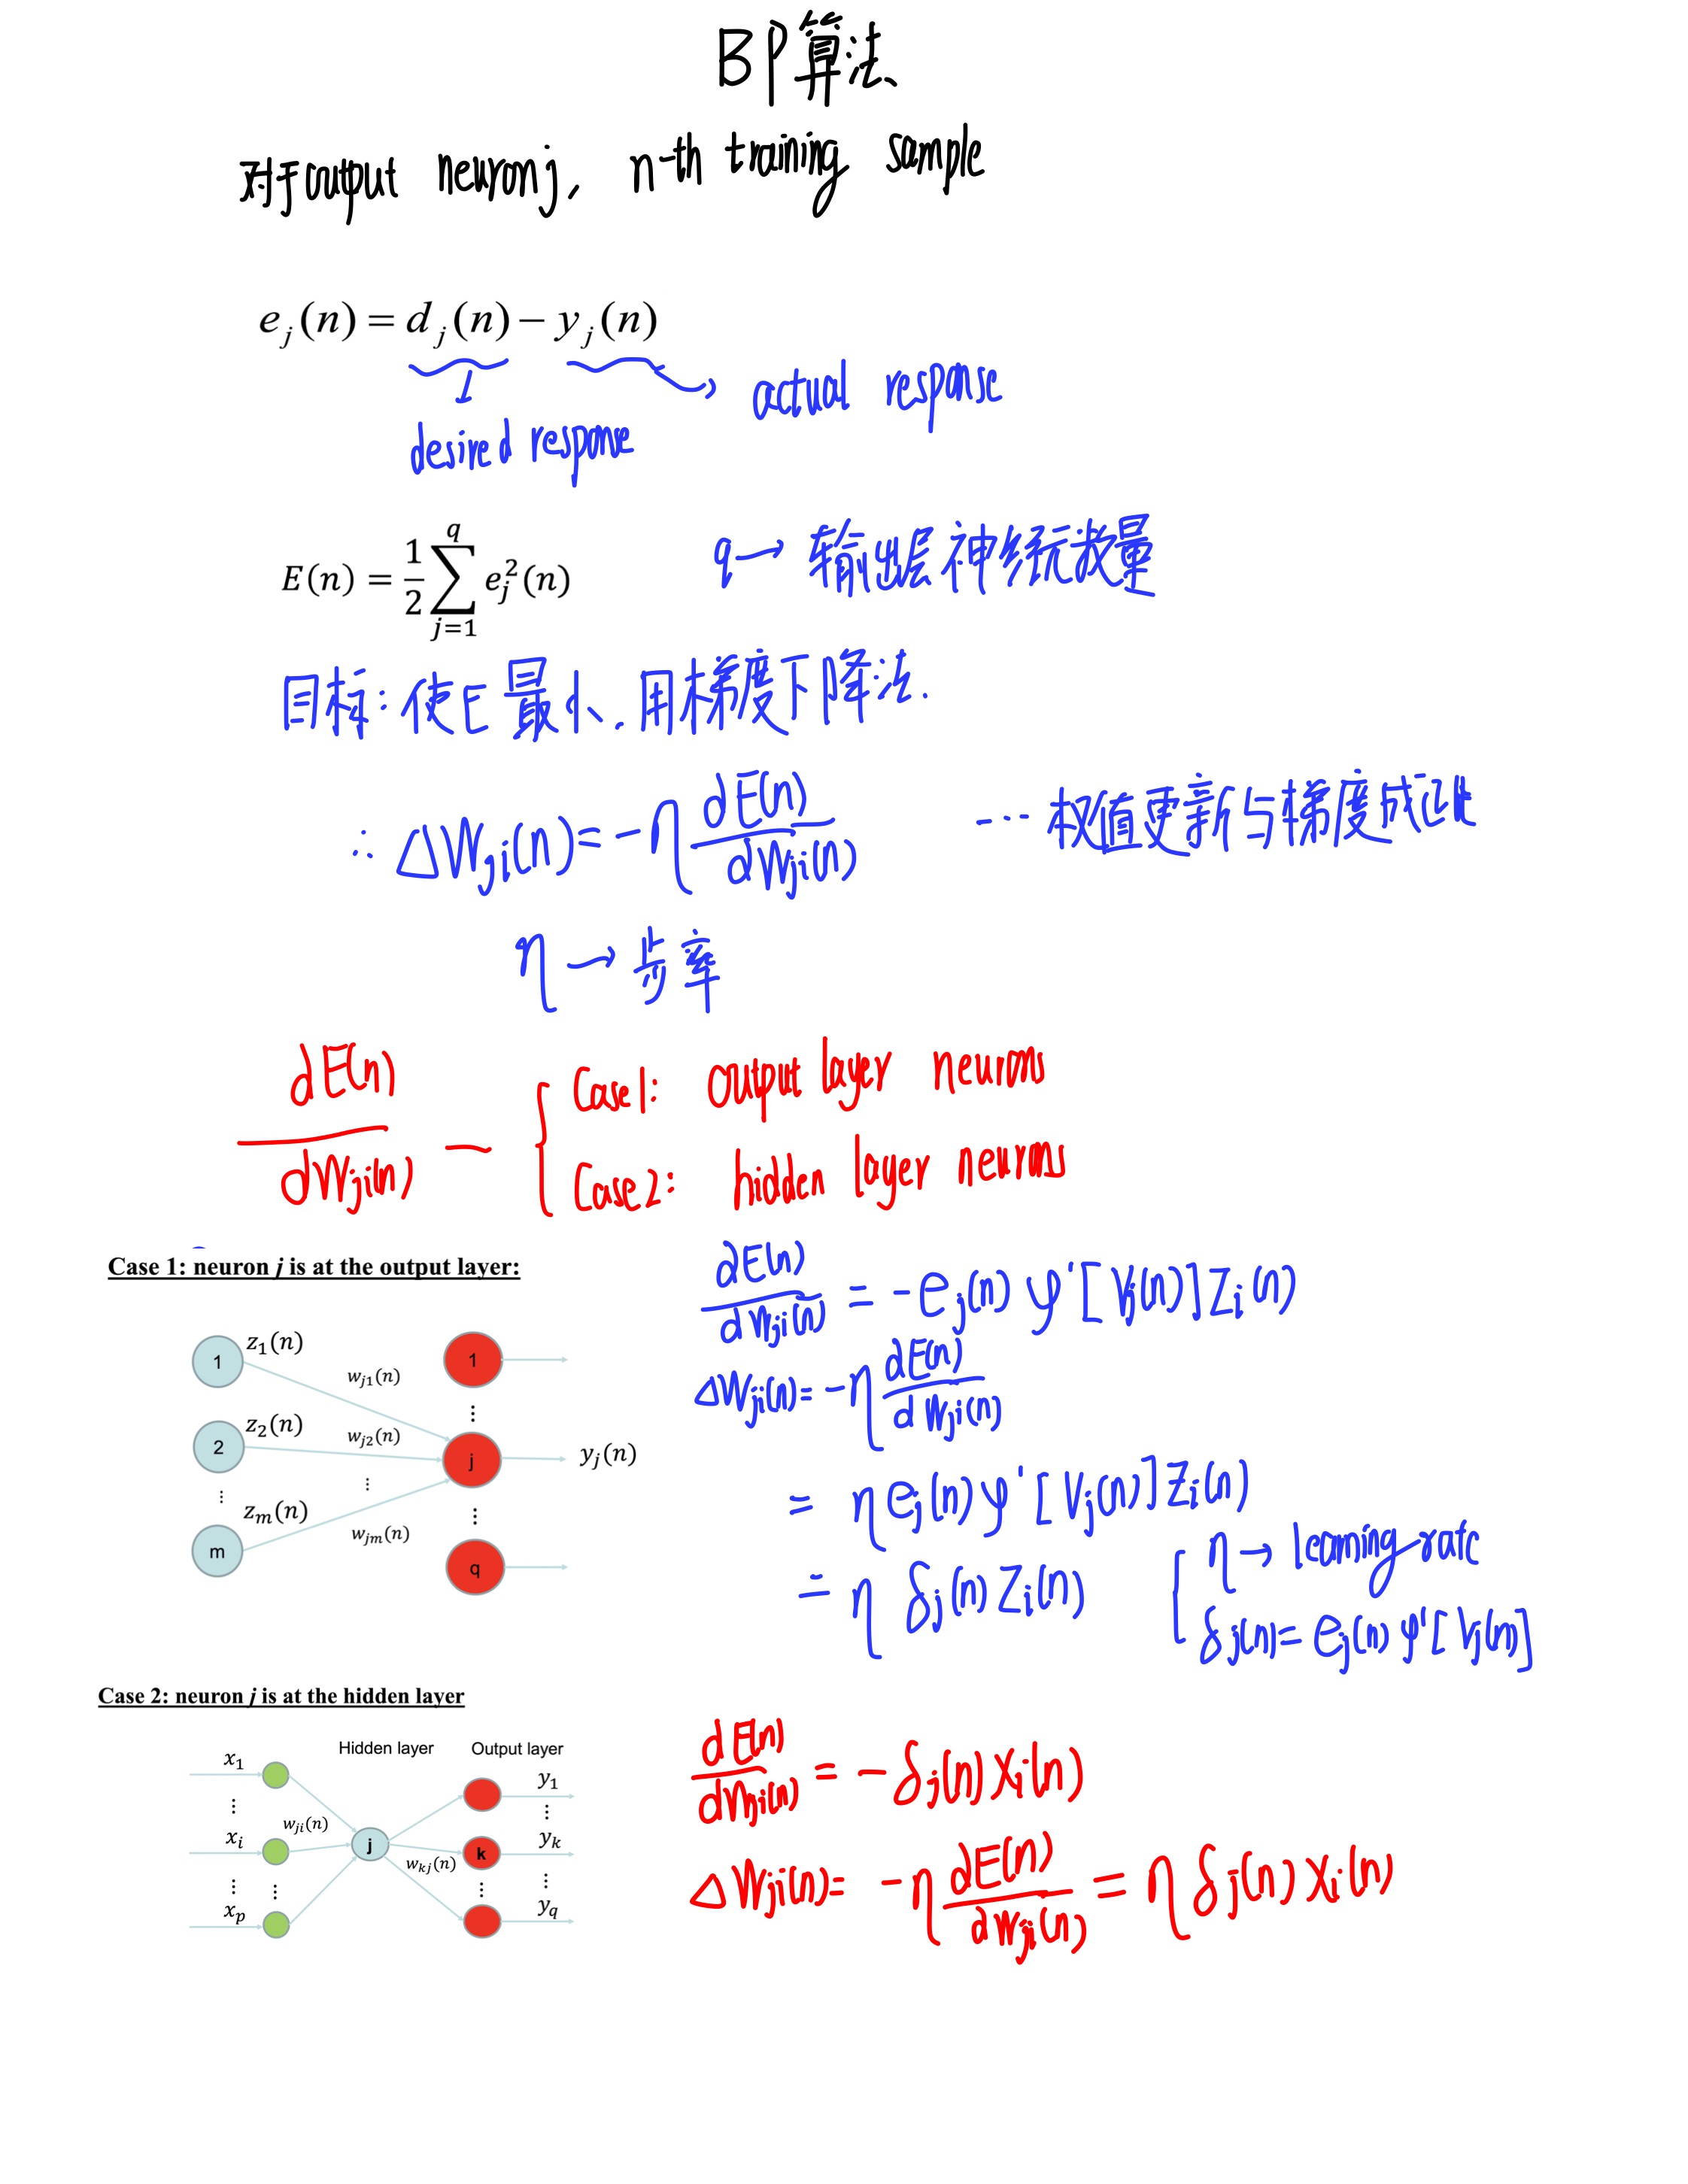 BP算法
对于output neuron j, n-th training sample
e_j(n) = d_j(n) − y_j(n)
desired response
actual response
E(n) = 1/2 ∑_{j=1}^{q} e_j^2(n)
q → 输出层神经元数量
目标: 使E最小. 用梯度下降法.
∴ ΔW_ji(n) = −η dE(n)/dW_ji(n) ... 权值更新与梯度成正比
η → 步率
dE(n)/dW_ji(n) — {
Case 1: output layer neurons
Case 2: hidden layer neurons
Case 1: neuron j is at the output layer:
1 z_1(n) w_j1(n) 1
⋮
2 z_2(n) w_j2(n) j y_j(n)
⋮ ⋮ ⋮
m z_m(n) w_jm(n) q
∂E(n)/dW_ji(n) = −e_j(n) φ'[V_j(n)] Z_i(n)
ΔW_ji(n) = −η dE(n)/dW_ji(n)
= η e_j(n) φ'[V_j(n)] Z_i(n)
= η δ_j(n) Z_i(n)
{ η → learning rate
δ_j(n) = e_j(n) φ'[V_j(n)]
Case 2: neuron j is at the hidden layer
Hidden layer Output layer
x_1 y_1
⋮ ⋮
x_i w_ji(n) j w_kj(n) k y_k
⋮ ⋮ ⋮ ⋮
x_p y_q
dE(n)/dW_ji(n) = −δ_j(n) X_i(n)
ΔW_ji(n) = −η dE(n)/dW_ji(n) = η δ_j(n) X_i(n)